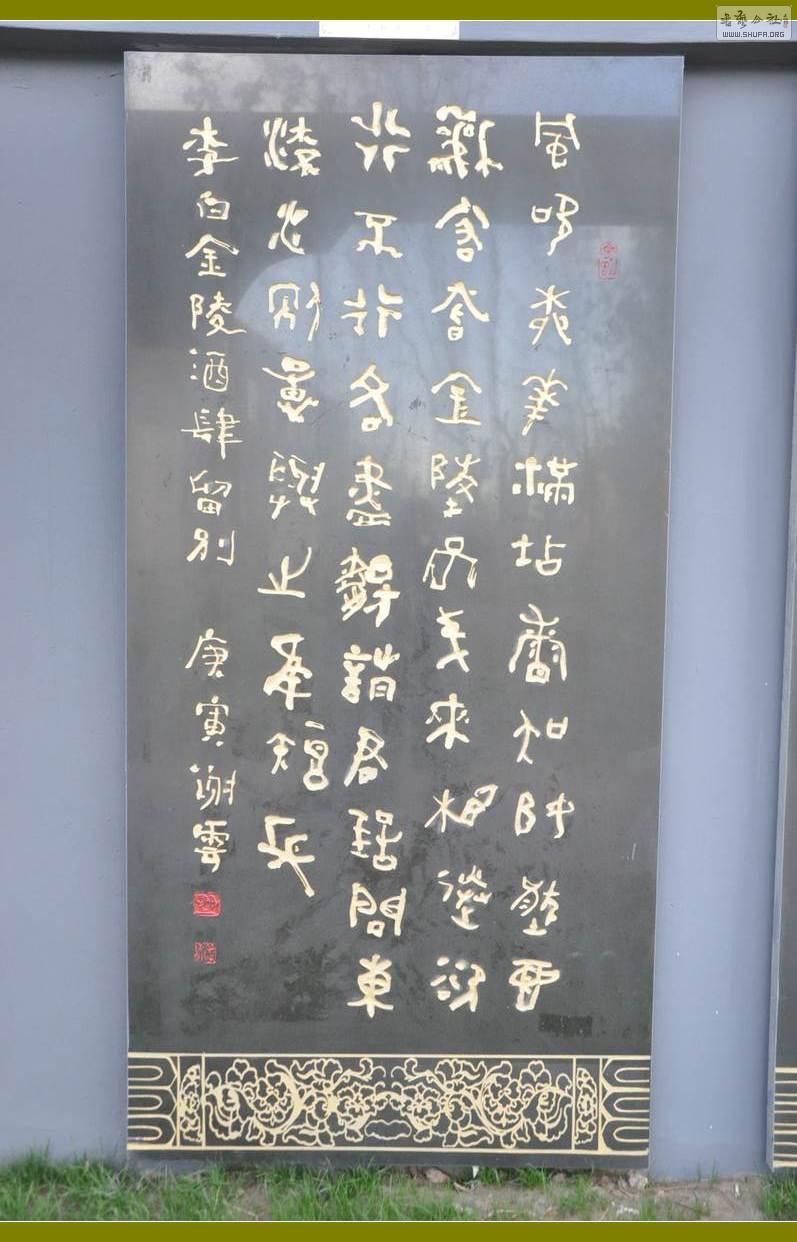 風吹柳花滿店香吳姬壓酒
喚客嘗金陵子弟來相送欲
行不行各盡觴請君試問東
流水別意與之誰短長
李白金陵酒肆留別 庚寅 謝雲
WWW.SHUFA.ORG